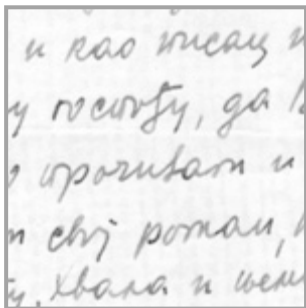 и као писац
у госпођу, да
прочитам и
свој роман,
Хвала и